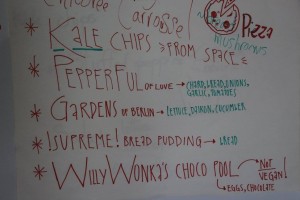 Carrosse
Pizza
mushrooms
* KALE CHIPS FROM SPACE
* PEPPERFUL OF LOVE → CHARD, BREAD, ONIONS, GARLIC, TOMATOES
* GARDENS OF BERLIN → LETTUCE, DAIKON, CUCUMBER
* !SUPREME! BREAD PUDDING → BREAD
* WILLY WONKA'S CHOCO POOL → NOT VEGAN!
→ EGGS, CHOCOLATE